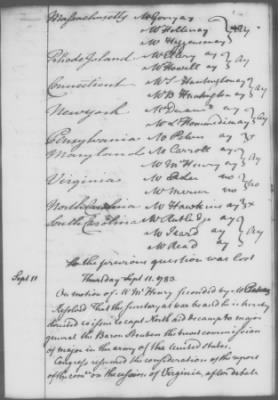 Massachusetts Mr Gerry ay
Mr Holten ay } Ay
Mr Higginson ay
Rhode Island Mr Ellery ay } Ay
Mr Howell ay
Connecticut Mr S Huntington ay } Ay
Mr B Huntington ay
New york Mr Duane ay } Ay
Mr L'Hommedieu ay
Pensylvania Mr Peters ay
Maryland Mr Carroll ay } Ay
Mr McHenry ay
Virginia Mr Lee no } no
Mr Mercer no
North Carolina Mr Hawkins ay
South Carolina Mr Rutledge ay
Mr Izard ay } Ay
Mr Read ay
So the previous question was lost
Sept 11 Thursday Sept 11. 1783.
On motion of Mr McHenry seconded by Mr
Resolved That the secretary at war be and he is hereby
directed to issue to capt North aid de camp to major
general the Baron Steuben the brevet commission
of major in the army of the United States.
Congress resumed the consideration of the report
of the comee on the cession of Virginia, after debate